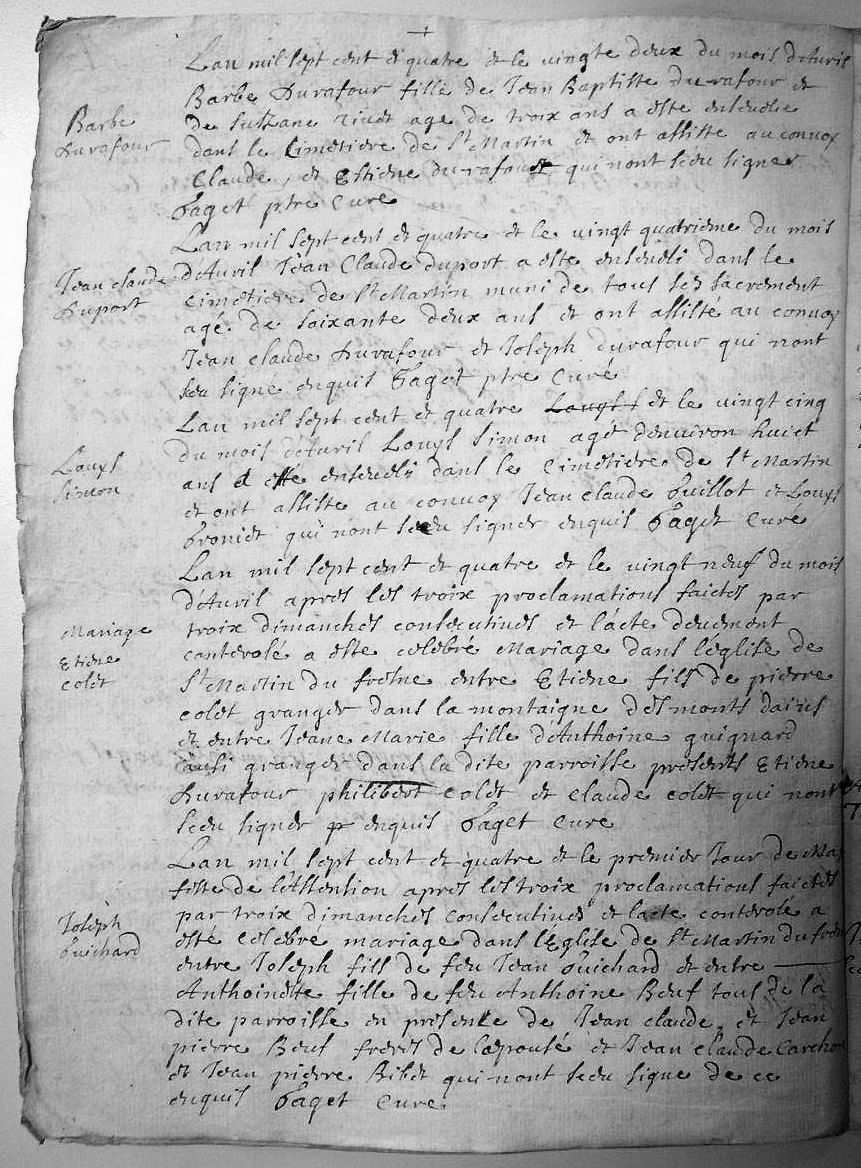 +
Lan mil sept cent et quatre et le vingte deux du mois dAuril
Barbe Durafour fille de Jean Baptiste durafour et
de Suszane age de troix ans a este enseuelie
Barbe
Durafour
dans le Cimetiere de St Martin et ont assiste au conuoy
Claude, et Estiene durafour qui nont sceu signer
Paget ptre Cure
Lan mil sept cent et quatre et le vingt quatrieme du mois
Jean claude
Duport
dAuril Jean Claude duport a este enseueli dans le
cimetiere de St Martin muni de tous ses sacrement
agé de soixante deux ans et ont assisté au conuoy
Jean claude Durafour et Joseph durafour qui nont
sceu signe enquis Paget ptre Curé
Lan mil sept cent et quatre Louys et le vingt cinq
du mois dAuril Louys Simon agé denuiron huict
Louys
Simon
ans a este enseueli dans le Cimetiere de St Martin
et ont assiste au conuoy Jean claude Guillot et Louys
qui nont sceu signer enquis Paget Curé
Lan mil sept cent et quatre et le vingt neuf du mois
dAuril apres les troix proclamations faictes par
Mariage
Etiene
colet
troix dimanches consecutiues et lacte deuement
conterolé a este celebré Mariage dans léglise de
St Martin du fresne entre Etiene fils de pierre
colet granger dans la montaigne des monts dains
et entre Jeane Marie fille dAnthoine guignard
ausi granger dans la dite parroisse présents Etiene
Durafour philibert colet et claude colet qui nont
sceu signer enquis Paget Cure
Lan mil sept cent et quatre et le premier Jour de May
feste de lAssention apres les troix proclamations faictes
Joseph
Guichard
par troix dimanches consecutiues et lacte conterolé a
esté celebré mariage dans lEglise de St Martin du fresne
entre Joseph fils de feu Jean Guichard et entre
Anthoinette fille de feu Anthoine Beuf tous de la
dite parroisse en présence de Jean claude, et Jean
pierre Beuf freres de lepousé et Jean claude
et Jean pierre Bibet qui nont sceu signe de ce
enquis Paget Cure